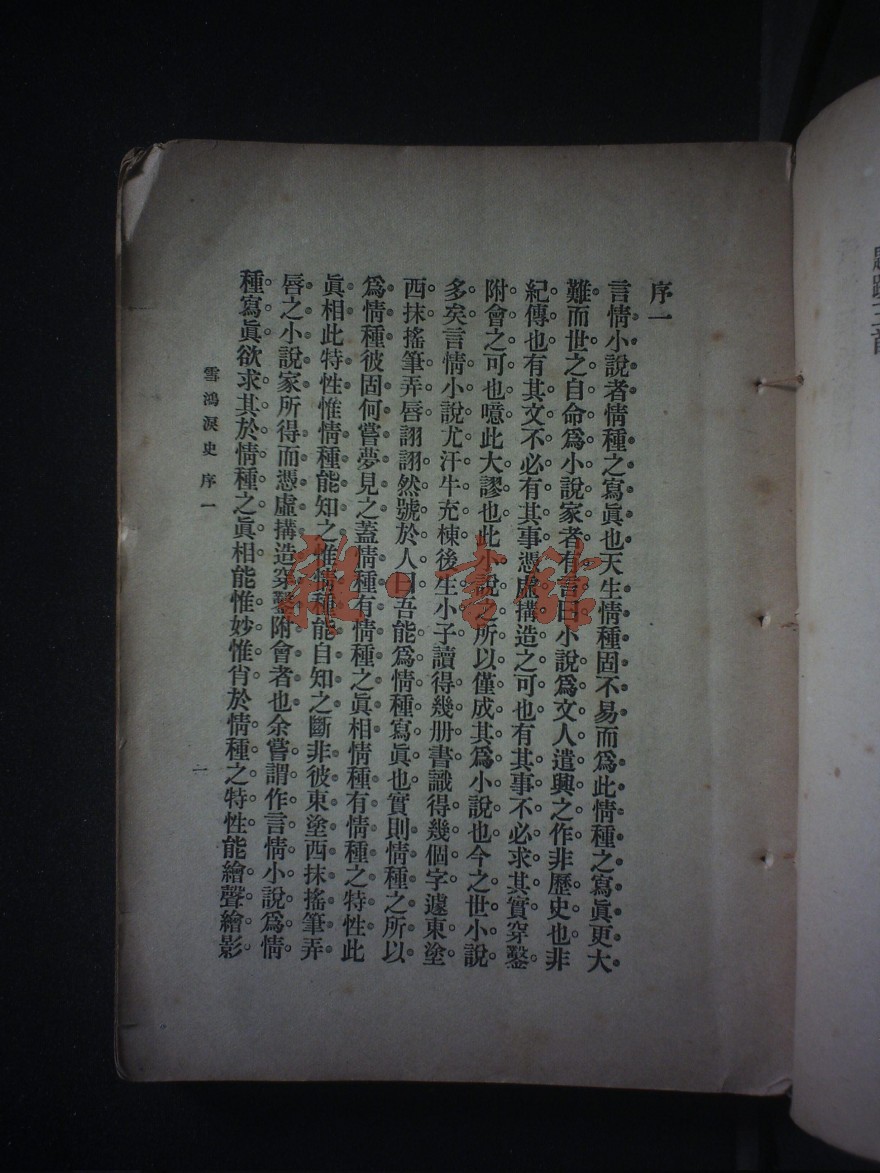 序一
言情小說者情種之寫眞也天生情種固不易而爲此情種之寫眞更大
難而世之自命爲小說家者有言曰小說爲文人遣興之作非歷史也非
紀傳也有其文不必有其事憑虛搆造之可也有其事不必求其實穿鑿
附會之可也噫此大謬也此小說之所以僅成其爲小說也今之世小說
多矣言情小說尤汗牛充棟後生小子讀得幾册書識得幾個字遽東塗
西抹搖筆弄唇詡詡然號於人曰吾能爲情種寫眞也實則情種之所以
爲情種彼固何嘗夢見之蓋情種有情種之眞相情種有情種之特性此
眞相此特性惟情種能知之惟情種能自知之斷非彼東塗西抹搖筆弄
唇之小說家所得而憑虛搆造穿鑿附會者也余嘗謂作言情小說爲情
種寫眞欲求其於情種之眞相能惟妙惟肖於情種之特性能繪聲繪影
雪鴻淚史 序一
一
雜·書館